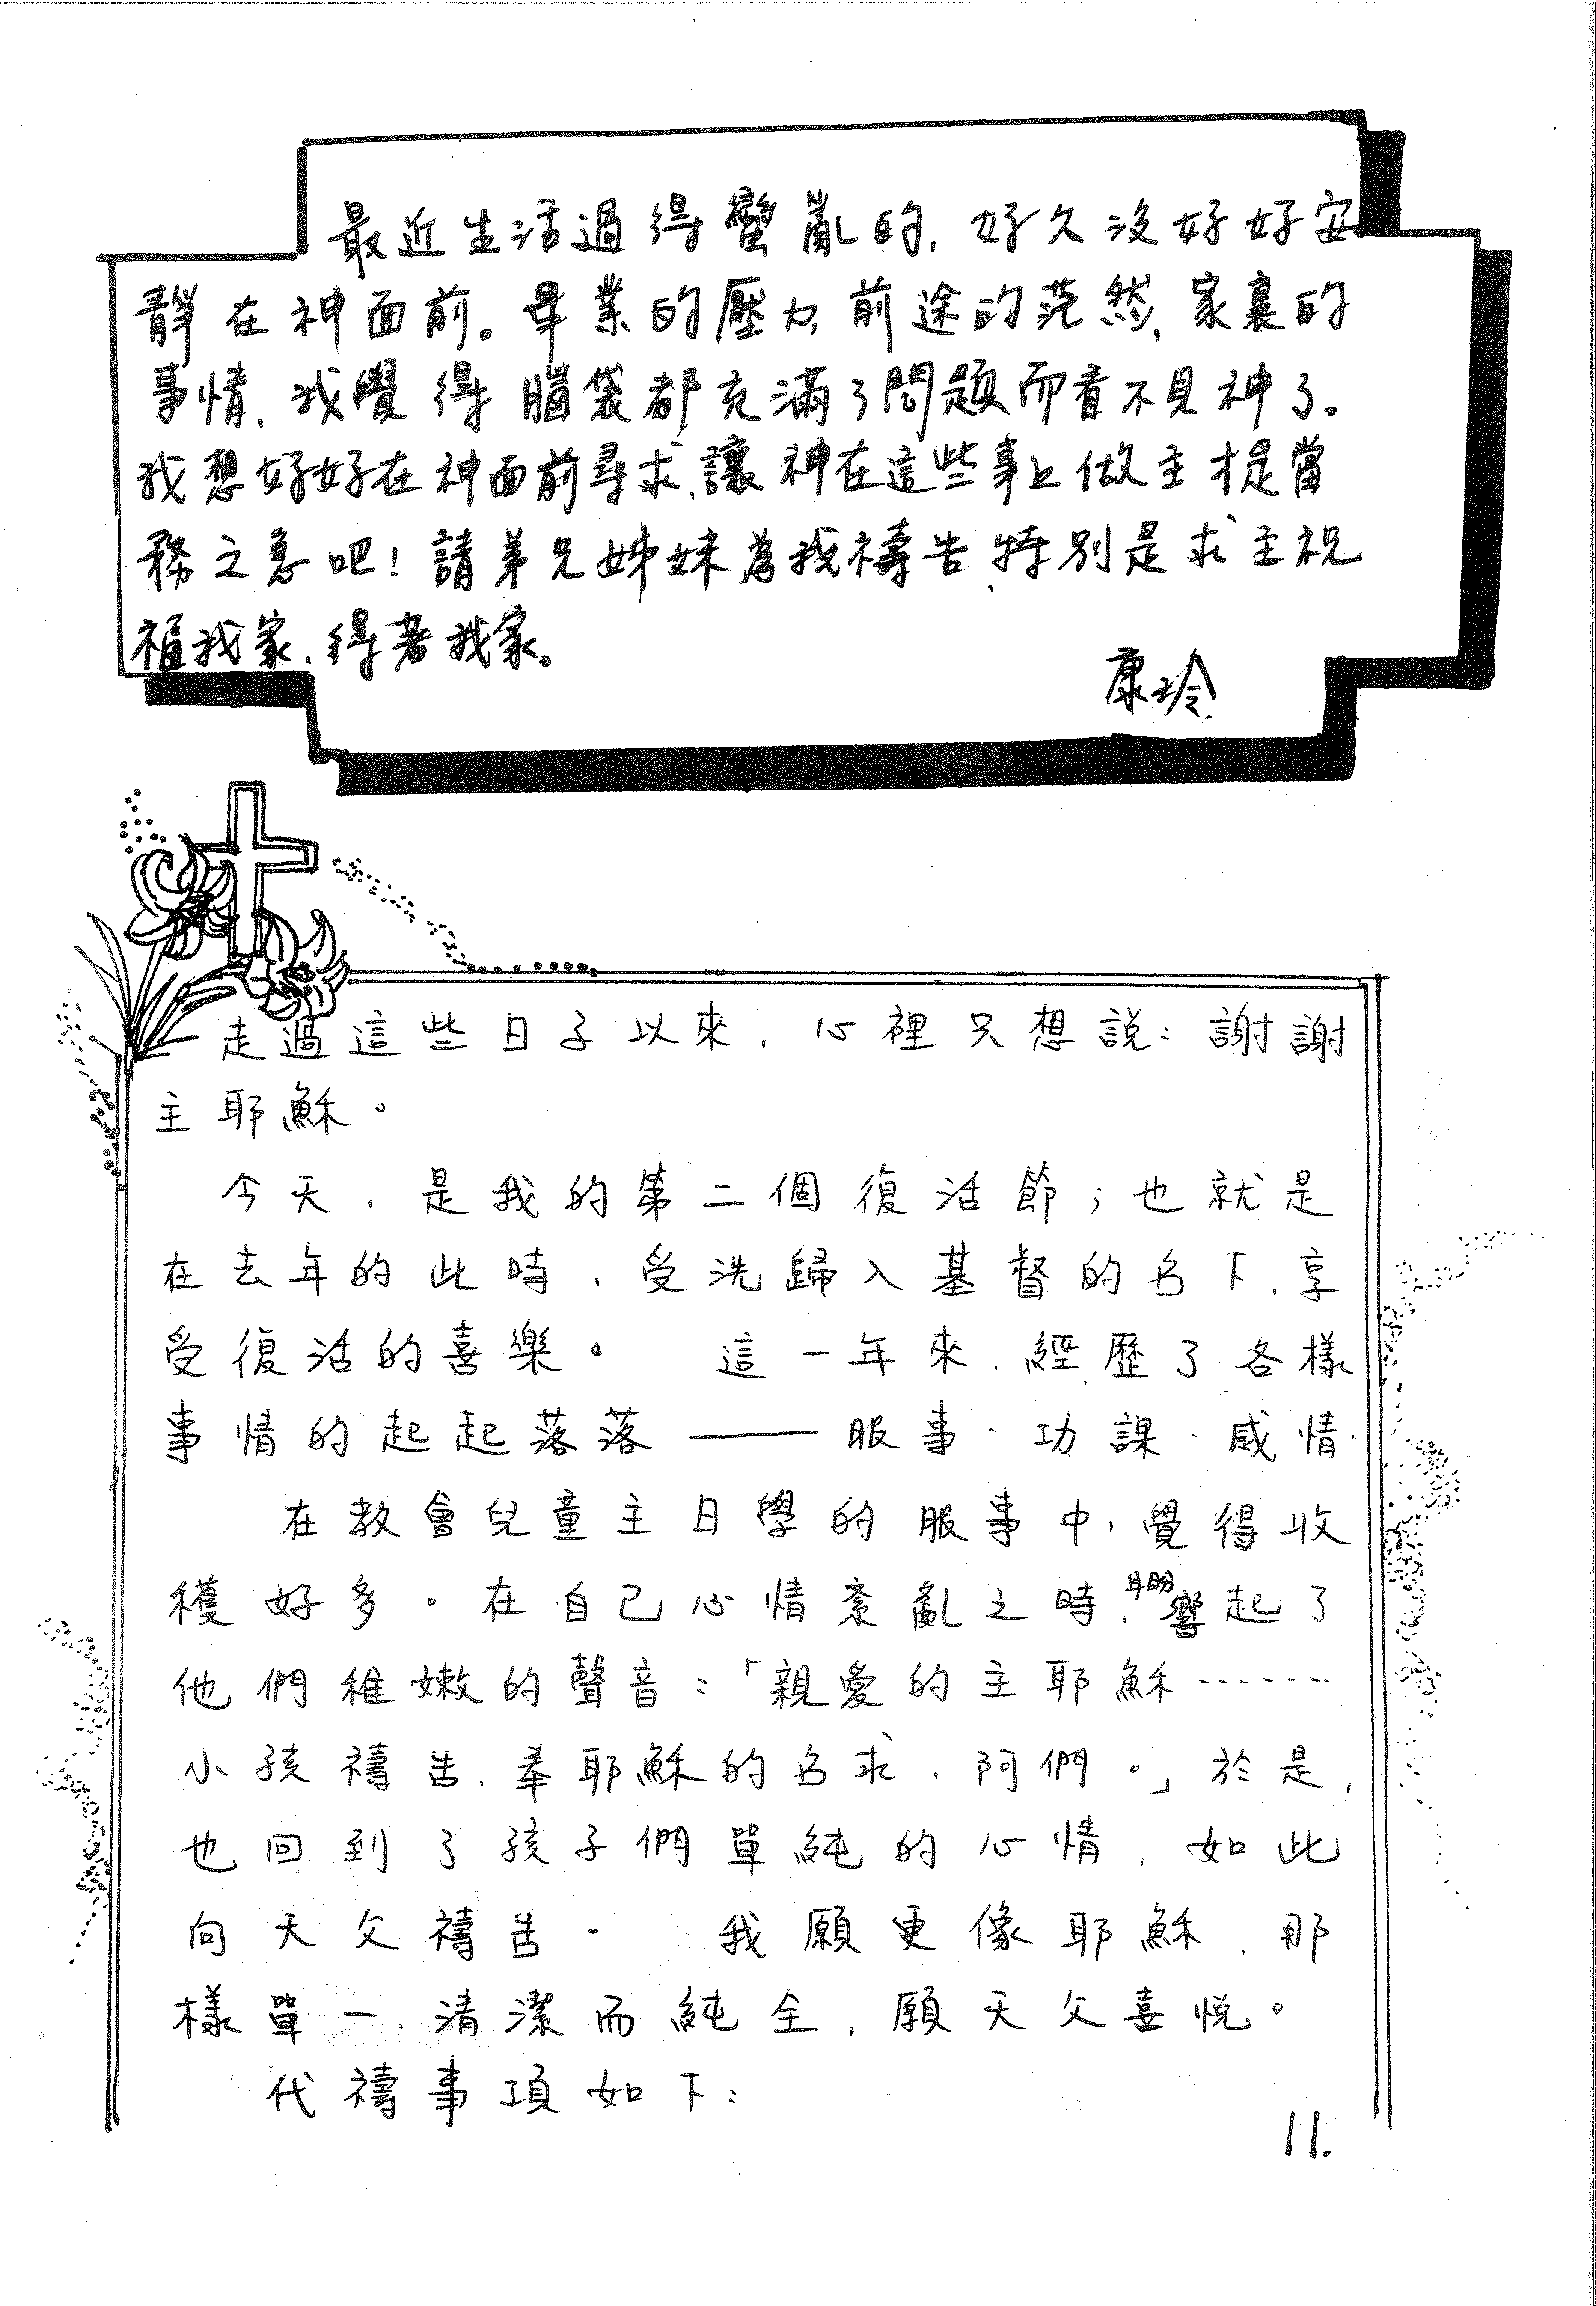 最近生活過得蠻亂的，好久沒好好安
靜在神面前。畢業的壓力，前途的茫然、家裏的
事情，我覺得腦袋都充滿了問題而看不見神了。
我想好好在神面前尋求，讓神在這些事上做主才是當
務之急吧！請弟兄姊妹為我禱告，特別是求主祝
福我家，得著我家。
康玲
走過這些日子以來，心裡只想說：謝謝
主耶穌。
今天，是我的第二個復活節；也就是
在去年的此時，受洗歸入基督的名下，享
受復活的喜樂。 這一年來，經歷了各樣
事情的起起落落——服事、功課、感情
在教會兒童主日學的服事中，覺得收
穫好多。在自己心情紊亂之時，耳盼響起了
他們稚嫩的聲音：「親愛的主耶穌……
小孩禱告，奉耶穌的名求，阿們。」於是，
也回到了孩子們單純的心情，如此
向天父禱告． 我願更像耶穌，那
樣單一、清潔而純全，願天父喜悅。
代禱事項如下：
11.